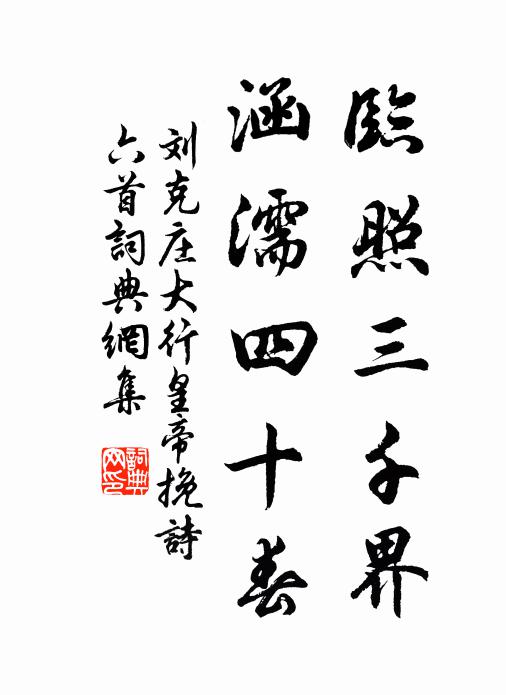 臨照三千界
涵濡四十春
刘克庄大行皇帝挽詩
六首詞典網集
詞典网印